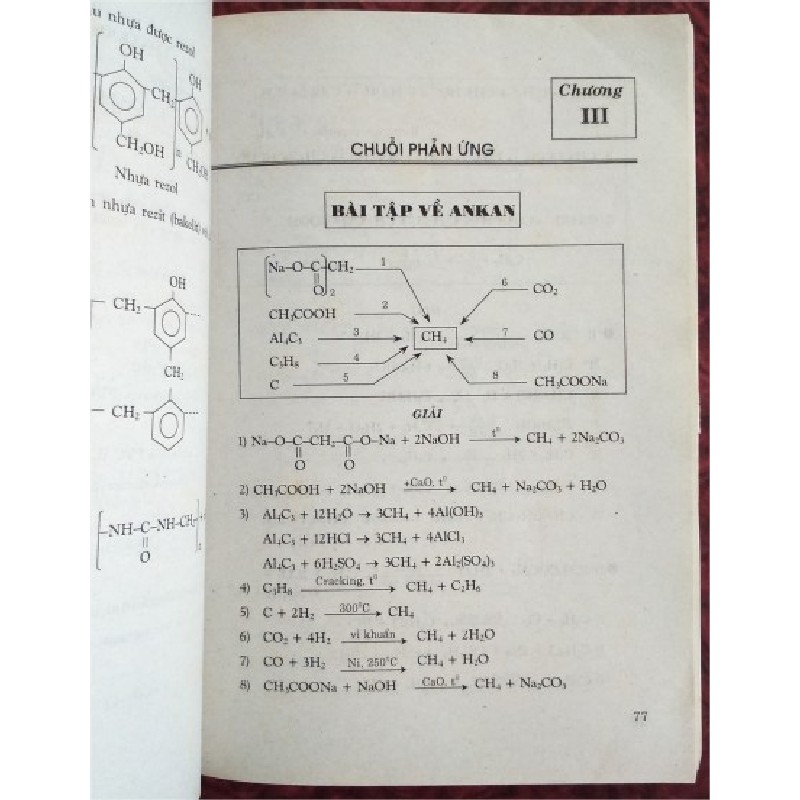 u nhựa được rezol
OH
OH
CH₂
CH₂OH
n
CH₂OH
Nhựa rezol
nhựa rezit (bakelit)
OH
CH₂
CH₂
CH₂
-NH-C-NH-CH₂
O
n
Chương
III
CHUỖI PHẢN ỨNG
BÀI TẬP VỀ ANKAN
Na-O-C-CH₂ 1
O 2
6 CO₂
CH₃COOH 2
Al₄C₃ 3 CH₄ 7 CO
C₃H₈ 4
C 5 8 CH₃COONa
GIẢI
1) Na-O-C-CH₂-C-O-Na + 2NaOH t⁰ → CH₄ + 2Na₂CO₃
O O
2) CH₃COOH + 2NaOH +CaO, t⁰ → CH₄ + Na₂CO₃ + H₂O
3) Al₄C₃ + 12H₂O → 3CH₄ + 4Al(OH)₃
Al₄C₃ + 12HCl → 3CH₄ + 4AlCl₃
Al₄C₃ + 6H₂SO₄ → 3CH₄ + 2Al₂(SO₄)₃
4) C₃H₈ Cracking, t⁰ → CH₄ + C₂H₆
5) C + 2H₂ 300°C → CH₄
6) CO₂ + 4H₂ vi khuẩn → CH₄ + 2H₂O
7) CO + 3H₂ Ni, 250°C → CH₄ + H₂O
8) CH₃COONa + NaOH CaO, t⁰ → CH₄ + Na₂CO₃
77